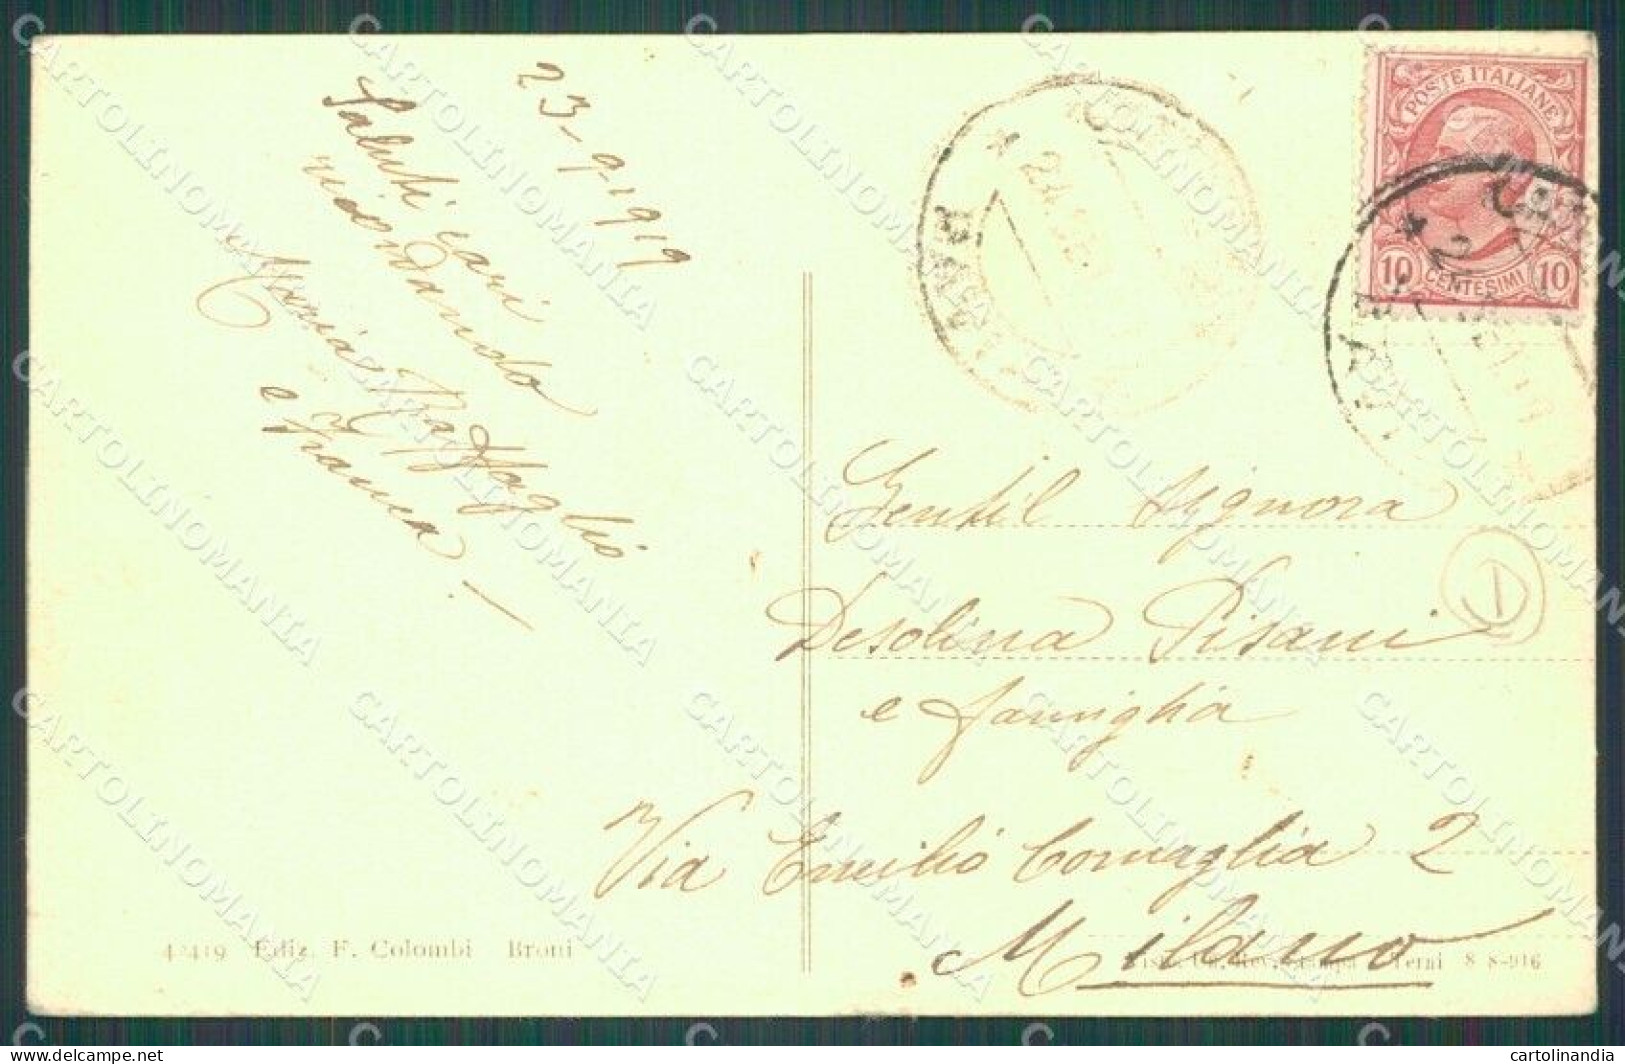 23-9-1919
Saluti cari
ricordando
Maria
e Franca.
POSTE ITALIANE
10 CENTESIMI 10
Gentil Signora
Desolina Pisani
e famiglia
Via Emilio Cornaglia 2
Milano
42419 Ediz. F. Colombi Broni
Terni 8-8-916
CARTOLINOMANIA
cartolinandia